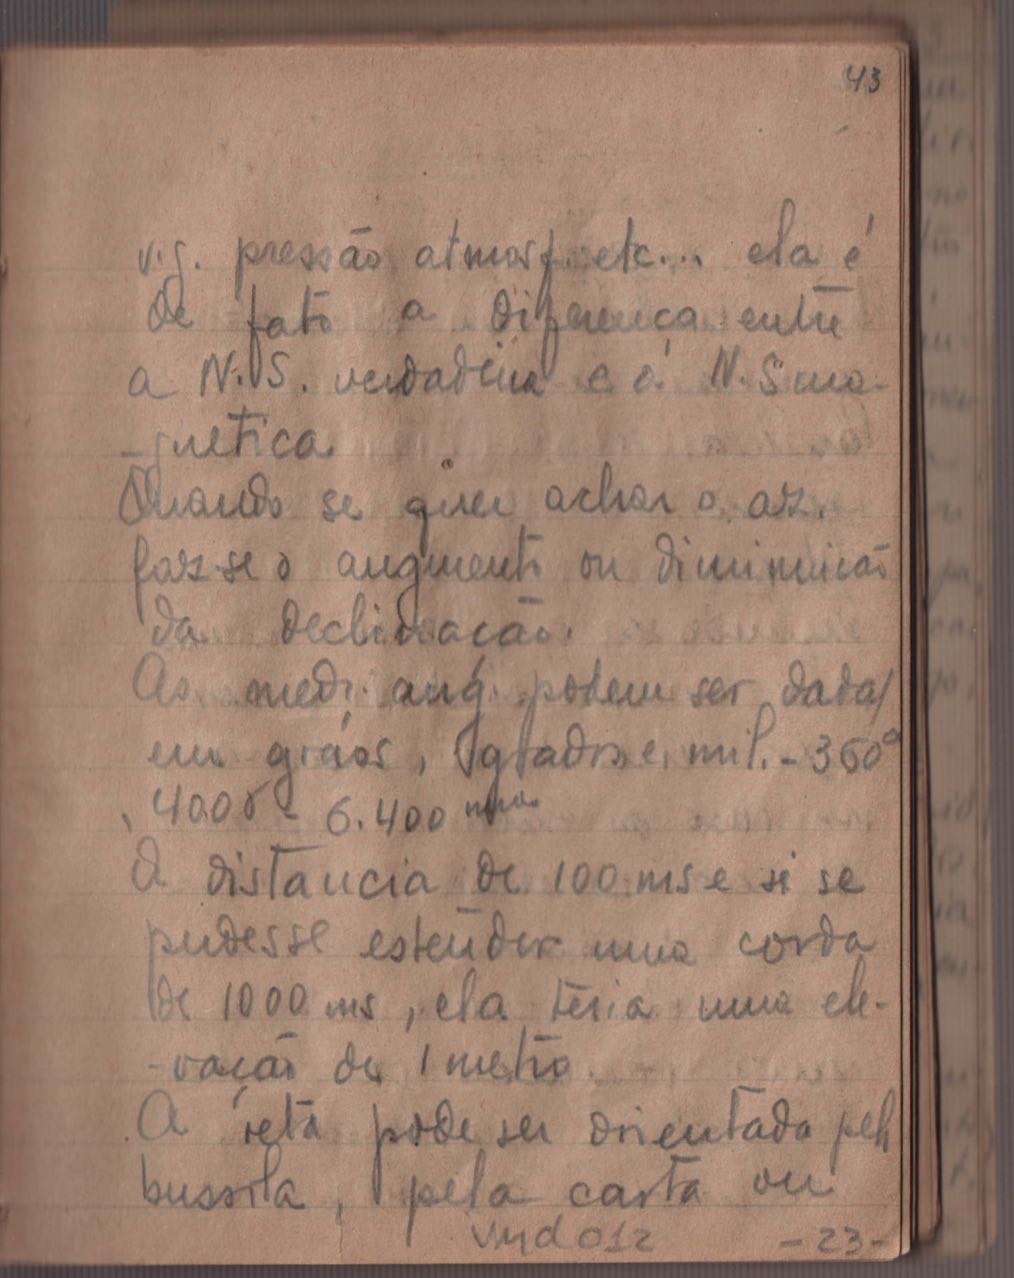 43
v.g. pressão atmosf. etc... ela é
de fato a diferença entre
a N.S. verdadeira e a N.S ma-
-gnetica.
Quando se quer achar o az.
faz-se o augmento ou diminuição
da declinação.
As med. ang. podem ser dadas
em gráos, grados e mil. - 360º
400 - 6.400
A distancia de 100 ms e si se
pudesse estender uma corda
de 1000 ms, ela teria uma ele-
-vação de 1 metro.
A reta pode ser orientada pela
bussola, pela carta ou
vmd012 -23-